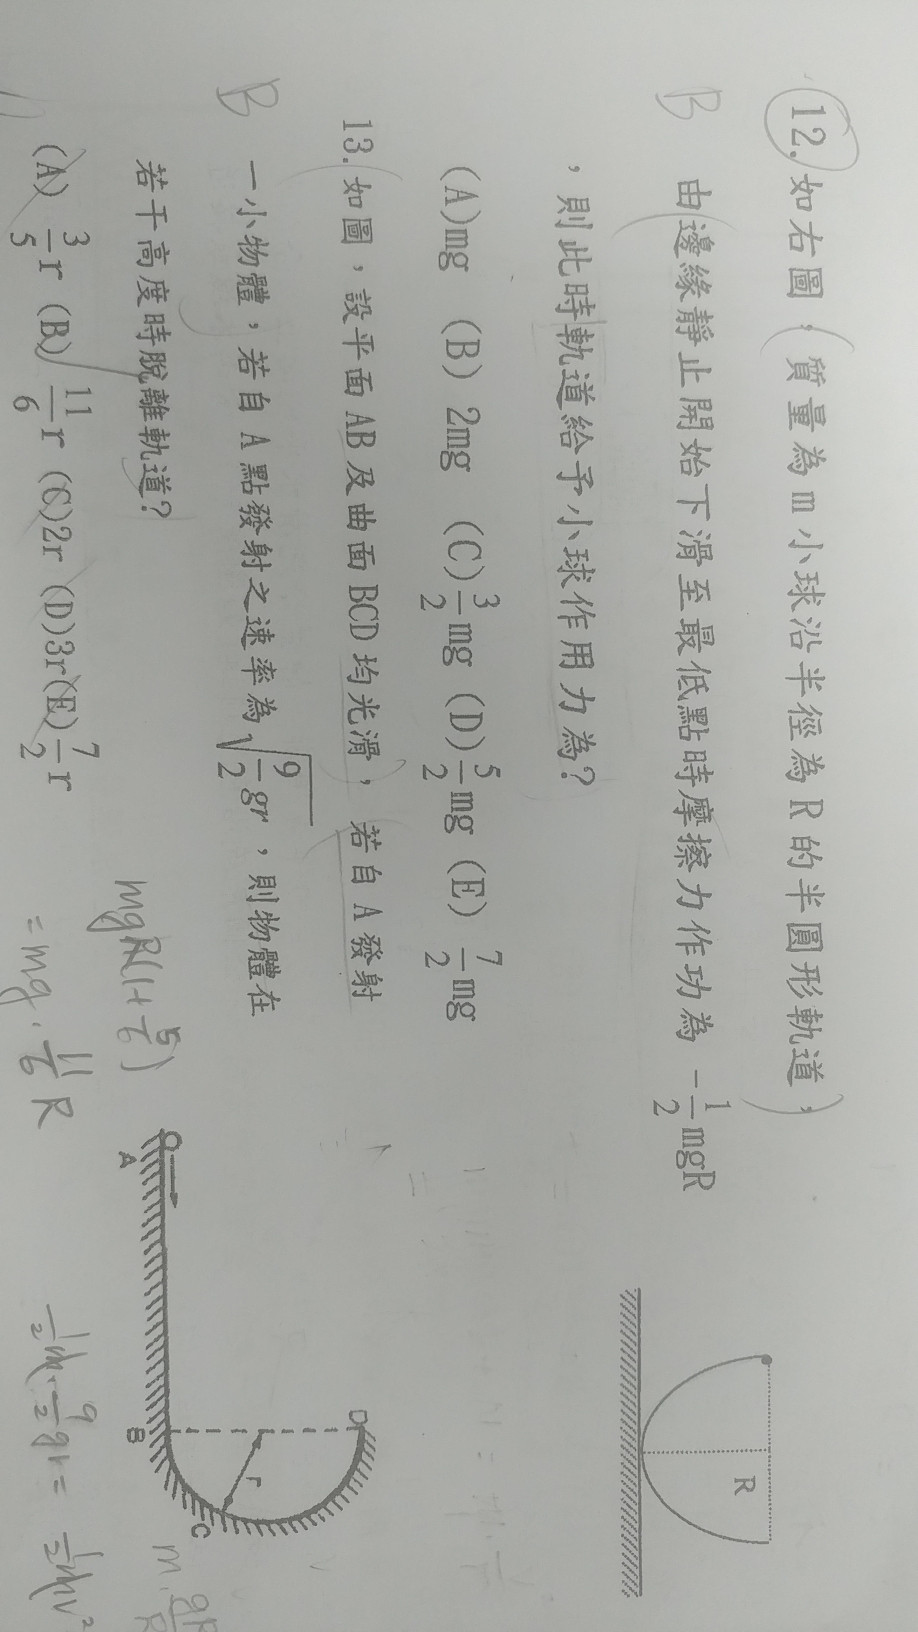 12.如右圖，質量為m小球沿半徑為R的半圓形軌道，
B 由邊緣靜止開始下滑至最低點時摩擦力作功為 -1/2 mgR
，則此時軌道給予小球作用力為?
(A)mg (B) 2mg (C) 3/2 mg (D) 5/2 mg (E) 7/2 mg
R
13.如圖，設平面AB及曲面BCD均光滑，若自A發射
B 一小物體，若自A點發射之速率為 √(9/2 gr)，則物體在
若干高度時脫離軌道?
(A) 3/5 r (B) 11/6 r (C)2r (D)3r (E) 7/2 r
mgR(1+5/6)
=mg·11/6 R
D
r
C
A
B
1/2 m·9/2 gr = 1/2 mv²